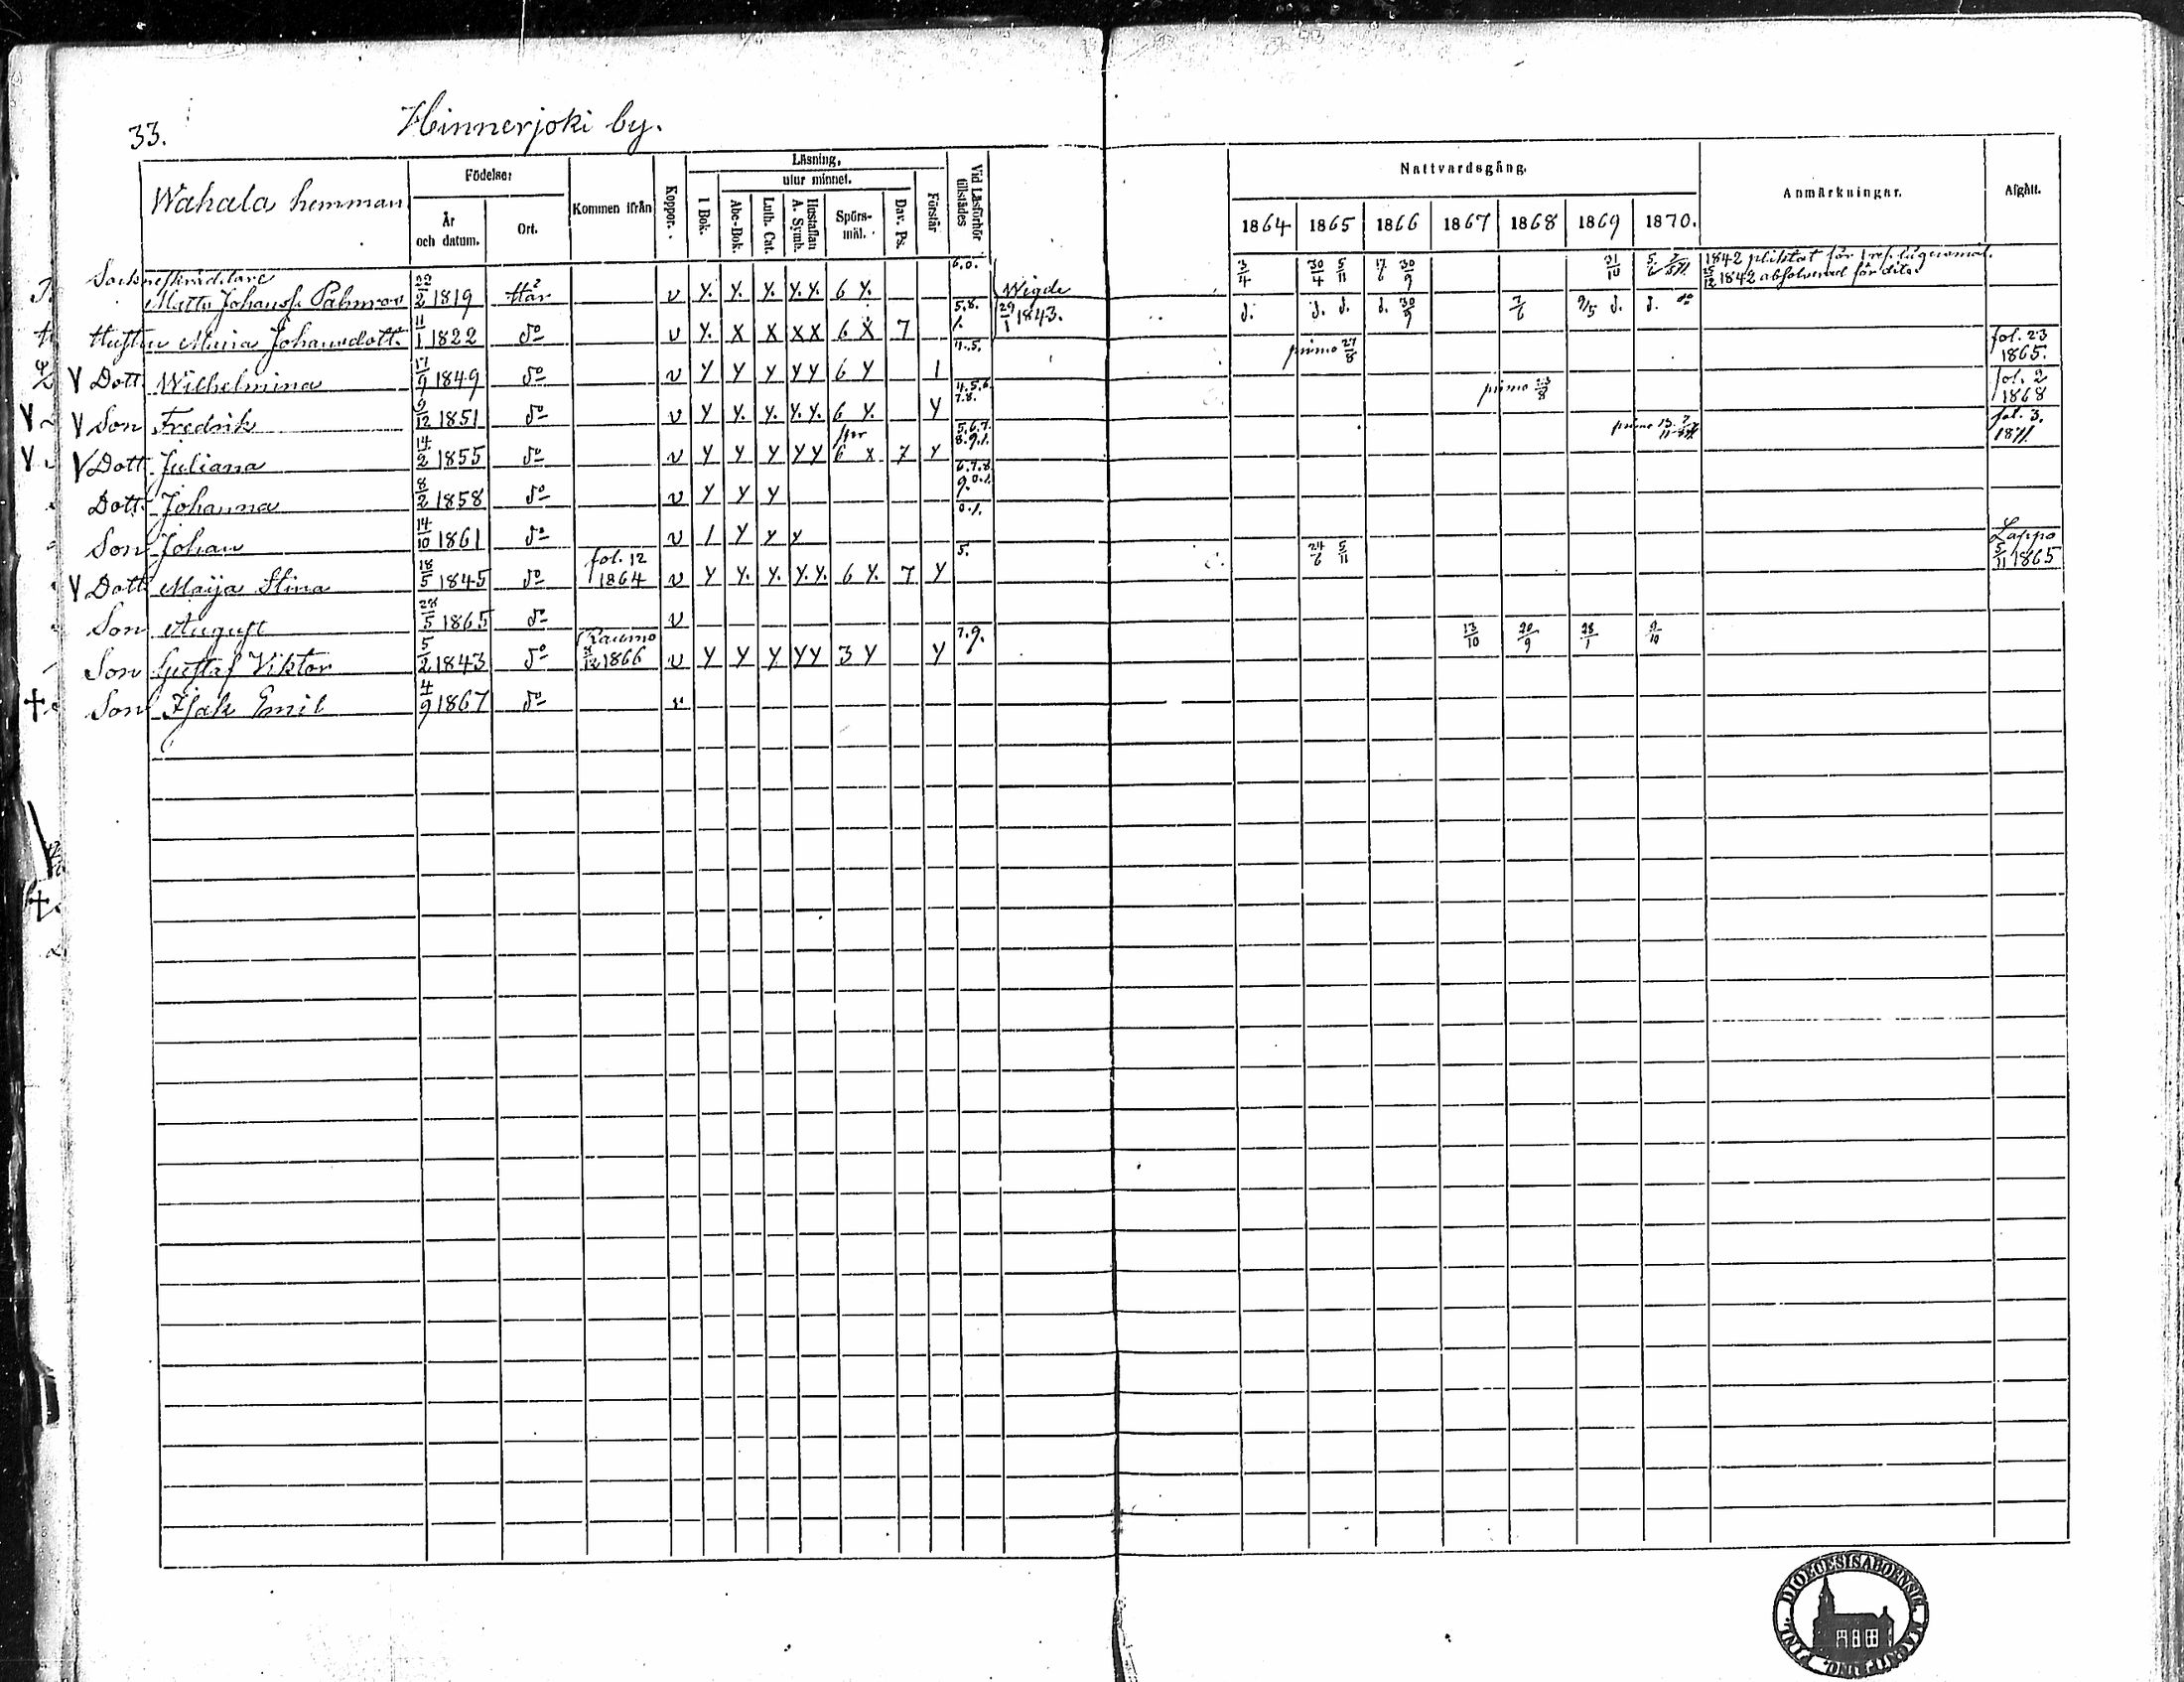 33. Hinnerjoki by.
Wahala hemman
Födelse: År och datum. Ort.
Kommen ifrån
Koppor.
Läsning, utur minnet.
I Bok. Abc-Bok. Luth. Cat. Hustaflan A. Symb. Spörsmål. Dav. Ps. Förstår
Vid Läsförhör tillstädes
Nattvardsgång.
1864 1865 1866 1867 1868 1869 1870.
Anmärkningar. Afgått.
Sockneskräddare 6.0. 1842 pliktat för
Matts Johanss. Palmros 22/2 1819 Här v y. y. y. y.y. 6 y. Wigde 3/4 30/4 5/11 17/6 30/9 31/10 25/12 1842 absolverad för dito
Hustru Maria Johansdott. 11/1 1822 do v y. x x xx 6 x 7 5.8. 1. 29/1 1843. d. d. d. d. 30/9 7/6 9/5 d. d. do
V Dott. Wilhelmina 17/9 1849 do v y y y yy 6 y 1 11.5. primo 27/8 fol. 23 1865.
V Son Fredrik 9/12 1851 do v y y. y. y.y. 6 y. y 4.5.6. 7.8. primo 23/8 fol. 2 1868
V Dott. Juliana 14/2 1855 do v y y y yy 6 x 7 y 5.6.7. 8.9.1. primo fol. 3. 1871.
Dott. Johanna 8/2 1858 do v y y y 6.7.8. 9.0.1.
Son Johan 14/10 1861 do v 1 y y y 0.1.
V Dott. Maija Stina 18/5 1845 do fol. 12 1864 v y y. y. y.y. 6 y. 7 y 5. 24/6 5/11 Lappo 5/11 1865
Son August 28/5 1865 do v
Son Gustaf Viktor 5/2 1843 do Raumo 1866 v y y y yy 3 y y 7.9. 13/10 20/9 28/1 9/10
Son Isak Emil 4/9 1867 do v
DIOECESIS ABOENSIS